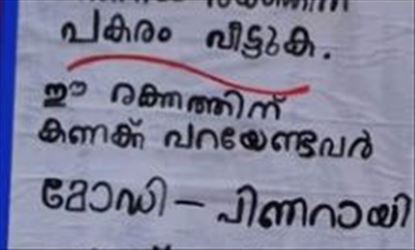 പകരം വീട്ടുക.
ഈ രക്തത്തിന്
കണക്ക് പറയേണ്ടവർ
മോഡി – പിണറായി